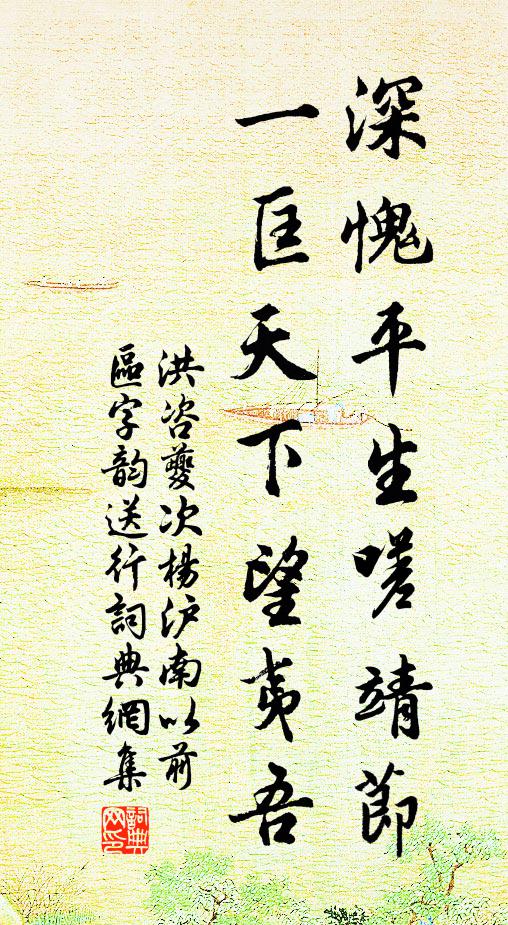 深愧平生嗟靖節
一匡天下望夷吾
洪咨夔次楊沪南以前
區字韵送行詞典網集
詞典网印